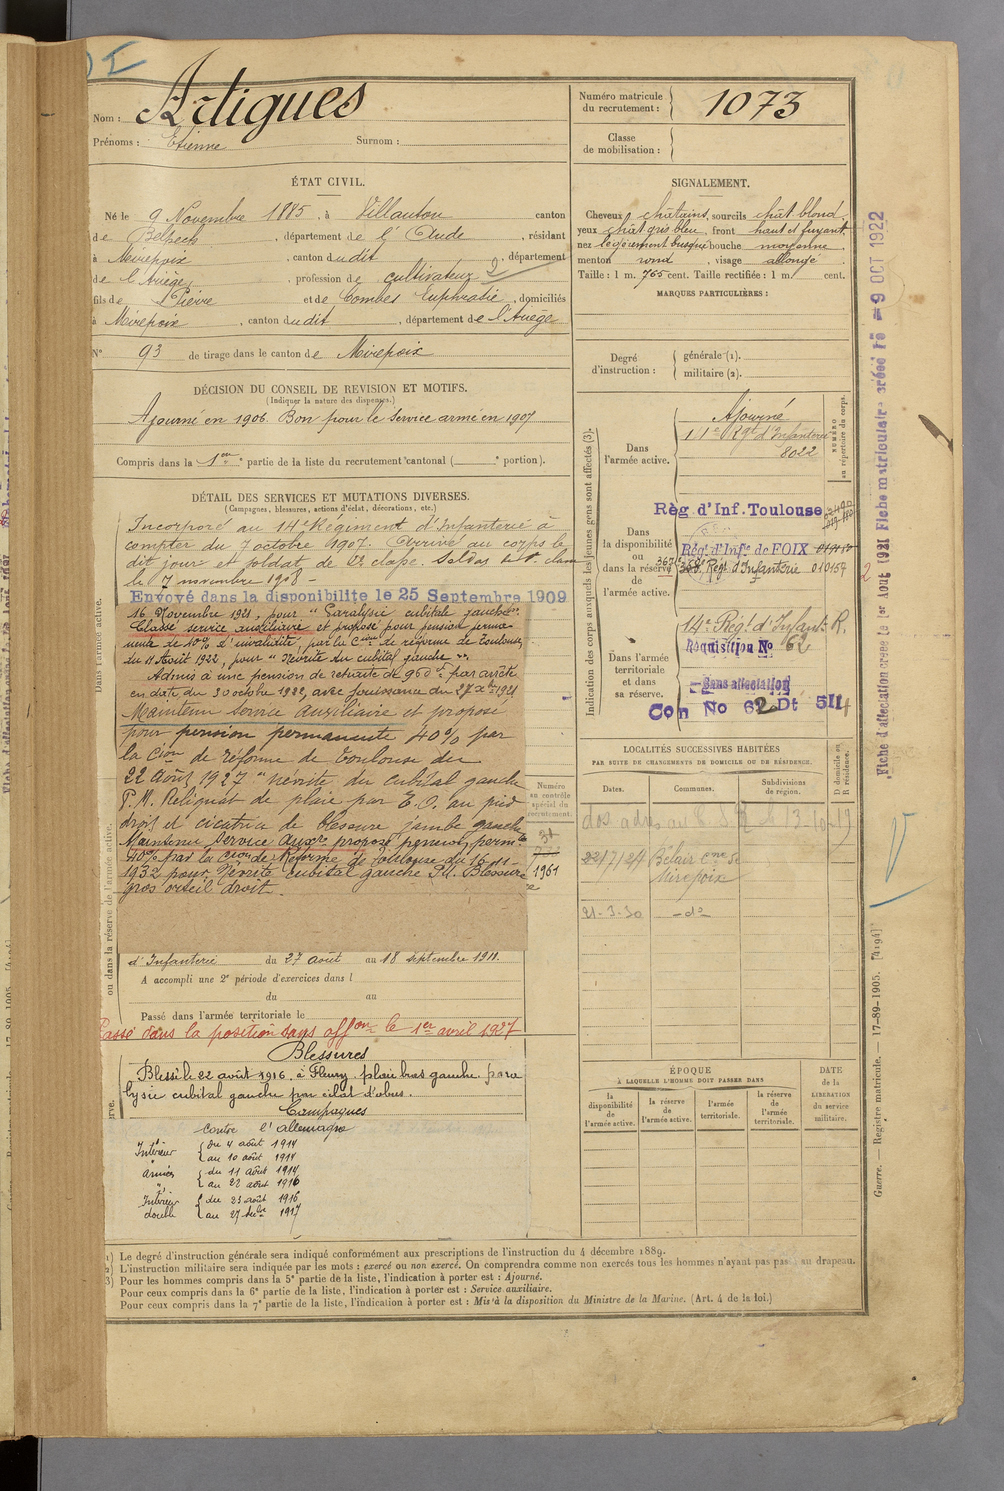 Nom : Artigues
Prénoms : Etienne Surnom :
Numéro matricule du recrutement : 1073
Classe de mobilisation :
ÉTAT CIVIL.
Né le 9 Novembre 1885, à Villautou canton
de Belpech, département de l'Aude, résidant
à Mirepoix, canton dudit, département
de l'Ariège, profession de cultivateur 2
fils de Pierre et de Combes Euphrasie, domiciliés
à Mirepoix, canton dudit, département de l'Ariège
N° 93 de tirage dans le canton de Mirepoix
SIGNALEMENT.
Cheveux châtains, sourcils chât blond.
yeux chât gris bleu, front haut et fuyant.
nez légèrement busqué bouche moyenne
menton rond, visage allongé.
Taille : 1 m. 765 cent. Taille rectifiée : 1 m. cent.
MARQUES PARTICULIÈRES :
Degré d'instruction :
générale (1).
militaire (2).
DÉCISION DU CONSEIL DE REVISION ET MOTIFS.
(Indiquer la nature des dispenses.)
Ajourné en 1906. Bon pour le service armé en 1907
Compris dans la 1ère partie de la liste du recrutement cantonal ( e portion).
DÉTAIL DES SERVICES ET MUTATIONS DIVERSES.
(Campagnes, blessures, actions d'éclat, décorations, etc.)
Dans l'armée active.
Incorporé au 14e Régiment d'Infanterie à
compter du 7 octobre 1907. Arrivé au corps le
dit jour et soldat de 2e classe.
le 7 novembre 1908 –
Envoyé dans la disponibilité le 25 Septembre 1909
16 Novembre 1921, pour "Paralysie cubitale gauche".
Classé service auxiliaire et proposé pour pension perma-
nente de 10% d'invalidité, par la Cion de réforme de Toulouse,
du 11 Août 1922, pour "Névrite du cubital gauche".
Admis à une pension de retraite de 960 par arrêté
en date du 30 octobre 1922, avec jouissance du 27 Xbre 1921
Maintenu service auxiliaire et proposé
pour pension permanente 40% par
la Cion de réforme de Toulouse du
22 Août 1927 "névrite du cubital gauche
P.M. Reliquat de plaie par E.O. au pied
droit et cicatrice de blessure jambe gauche
Maintenu service auxre proposé pension permte
40% par la Cion de Réforme de Toulouse du 16-11-
1932 pour Névrite cubital gauche P.M. Blessure
gros orteil droit.
ou dans la réserve de l'armée active.
d'Infanterie du 27 août au 18 septembre 1911.
A accompli une 2e période d'exercices dans l
du au
Passé dans l'armée territoriale le
Passé dans la position sans affon le 1er avril 1927
Blessures
Blessé le 22 août 1916. à Fleury. plaie bras gauche. para
lysie cubital gauche par éclat d'obus.
Campagnes
contre l'allemagne
Intérieur { du 4 août 1914
au 10 août 1914
Armées { du 11 août 1914
au 22 août 1916
Intérieur { du 23 août 1916
double au 27 1917
Indication des corps auxquels les jeunes gens sont affectés (3).
NUMÉRO au répertoire du corps.
Dans l'armée active.
Ajourné
14e Rgt d'Infanterie
8022
Dans la disponibilité ou dans la réserve de l'armée active.
Règ d'Inf. Toulouse
Rég. d'Infie de FOIX
Rég d'Infanterie 010154
Dans l'armée territoriale et dans sa réserve.
14e Rég. d'Infant. R.
Réquisition No 62
Sans affectation
Con No 62 Dt 511
LOCALITÉS SUCCESSIVES HABITÉES
PAR SUITE DE CHANGEMENTS DE DOMICILE OU DE RÉSIDENCE.
Dates. Communes. Subdivisions de région. D domicile ou R résidence.
22/7/24 Bélair cne de
Mirepoix
21-3-30 – do
Numéro au contrôle spécial du recrutement.
1961
ÉPOQUE
À LAQUELLE L'HOMME DOIT PASSER DANS
la disponibilité de l'armée active.
la réserve de l'armée active.
l'armée territoriale.
la réserve de l'armée territoriale.
DATE de la LIBÉRATION du service militaire.
1) Le degré d'instruction générale sera indiqué conformément aux prescriptions de l'instruction du 4 décembre 1889.
2) L'instruction militaire sera indiquée par les mots : exercé ou non exercé. On comprendra comme non exercés tous les hommes n'ayant pas passé au drapeau.
3) Pour les hommes compris dans la 5e partie de la liste, l'indication à porter est : Ajourné.
Pour ceux compris dans la 6e partie de la liste, l'indication à porter est : Service auxiliaire.
Pour ceux compris dans la 7e partie de la liste, l'indication à porter est : Mis à la disposition du Ministre de la Marine. (Art. 4 de la loi.)
Guerre. — Registre matricule. — 17-89-1905. [4194]
Fiche d'affectation créée le 1er Aout 1921 Fiche matriculaire créée le – 9 OCT 1922